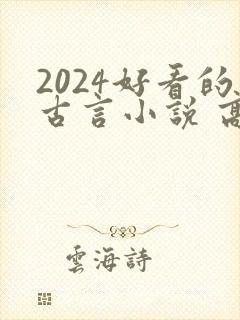 2024好看的
古言小说 高
雲海詩